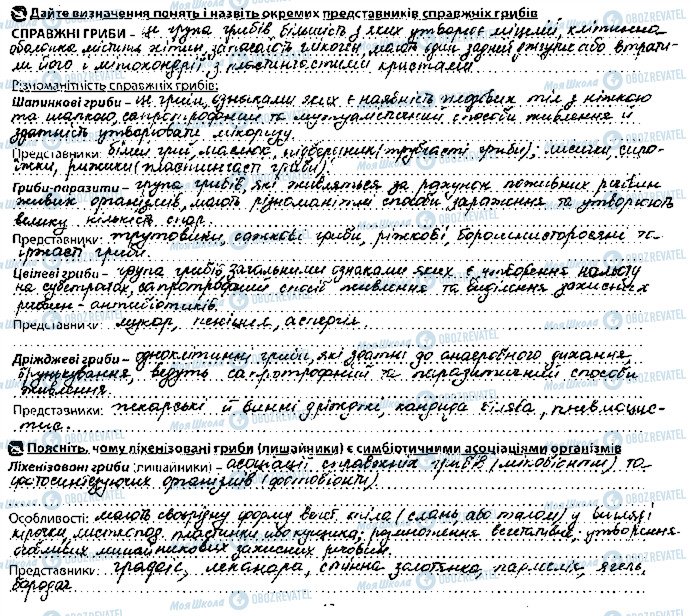 Дайте визначення понять і назвіть окремих представників справжніх грибів
СПРАВЖНІ ГРИБИ – це група грибів, більшість з яких утворює міцелій, клітинна
оболонка містить хітин, запасають глікоген, мають один задній джгутик або втрати-
ли його і мітохондрії з пластинчастими кристами.
Різноманітність справжніх грибів:
Шапинкові гриби – це гриби, ознаками яких є наявність плодових тіл з ніжкою
та шапкою, сапротрофний та мутуалістичний способи живлення й
здатність утворювати мікоризу.
Представники: білий гриб, маслюк, підберезник (трубчасті гриби), лисички, сиро-
їжки, рижики (пластинчасті гриби).
Гриби-паразити – група грибів, які живляться за рахунок поживних речовин
живих організмів, мають різноманітні способи зараження та утворюють
велику кількість спор.
Представники: трутовики, сажкові гриби, ріжкові, борошнисторосяні та
іржасті гриби.
Цвілеві гриби – група грибів, загальними ознаками яких є утворення нальоту
на субстратах, сапротрофний спосіб живлення та виділення захисних
речовин – антибіотиків.
Представники: мукор, пеніцил, аспергіл.
Дріжджеві гриби – одноклітинні гриби, які здатні до анаеробного дихання,
брунькування, ведуть сапротрофний та паразитичний способи
живлення.
Представники: пекарські й винні дріжджі, кандида білява, пневмоцис-
тис.
Поясніть, чому ліхенізовані гриби (лишайники) є симбіотичними асоціаціями організмів
Ліхенізовані гриби (лишайники) – асоціації справжніх грибів (мікобіонти) та
фотосинтезуючих організмів (фотобіонти).
Особливості: мають своєрідну форму вегет. тіла (слань, або талом) у вигляді
кірочки, листопод. пластинки або кущика, розмноження вегетативне, утворення
особливих лишайникових захисних речовин.
Представники: графіс, леканора, стінна золотянка, пармелія, ягель,
бородач.
Моя Школа OBOZREVATEL